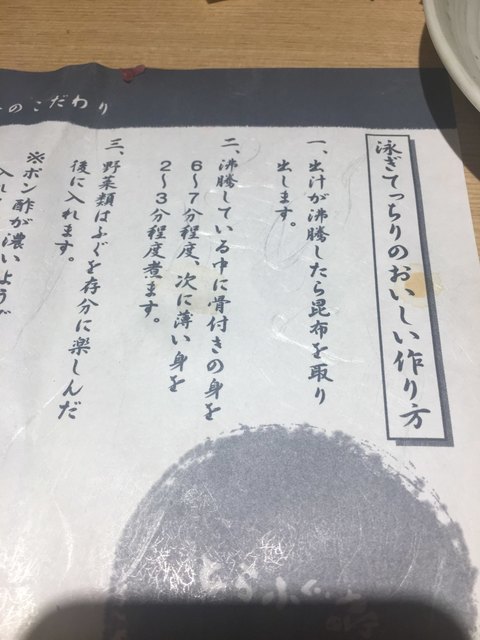 のこだわり
泳ぎてっちりのおいしい作り方
一、出汁が沸騰したら昆布を取り
出します。
二、沸騰している中に骨付きの身を
6〜7分程度、次に薄い身を
2〜3分程度煮ます。
三、野菜類はふぐを存分に楽しんだ
後に入れます。
※ポン酢が濃いよう
とらふぐ亭